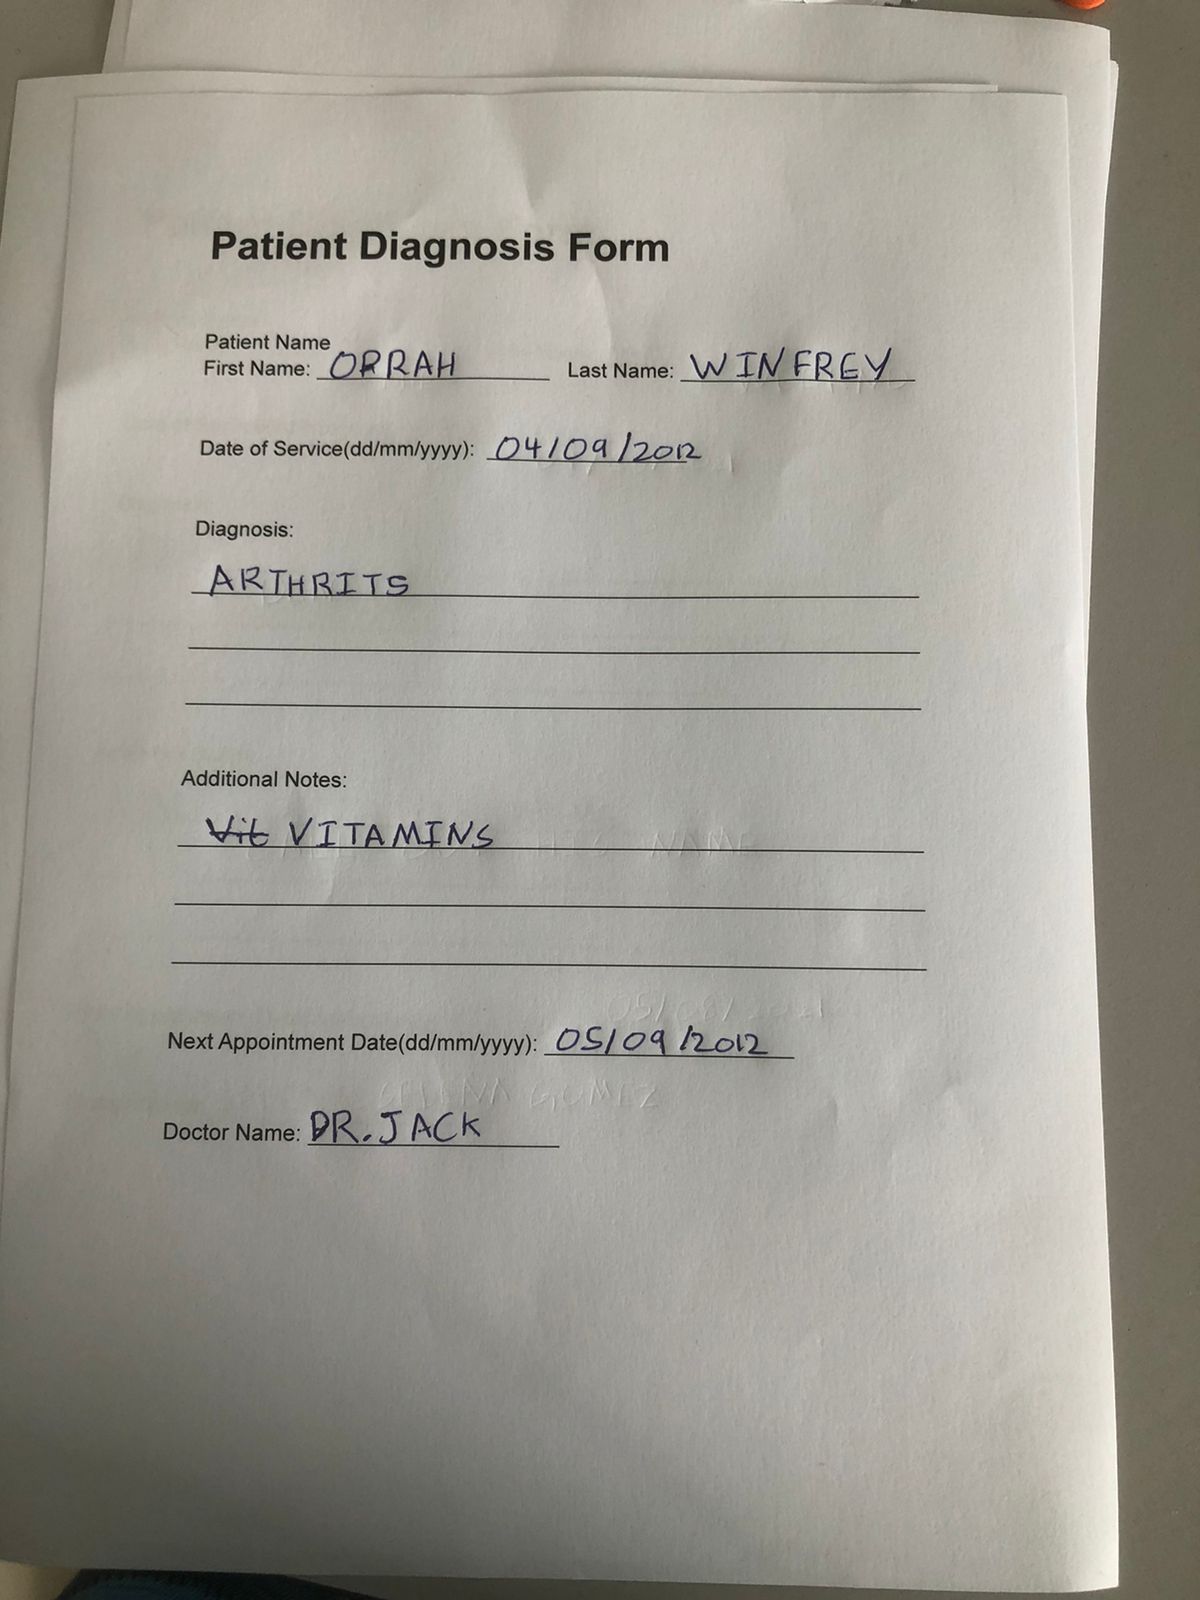 Patient Diagnosis Form
Patient Name
First Name: ORRAH Last Name: WINFREY
Date of Service(dd/mm/yyyy): 04/09/2012
Diagnosis:
ARTHRITS
Additional Notes:
Vit VITAMINS
NAME
Next Appointment Date(dd/mm/yyyy): 05/09/2012
SELENA GOMEZ
Doctor Name: DR. JACK